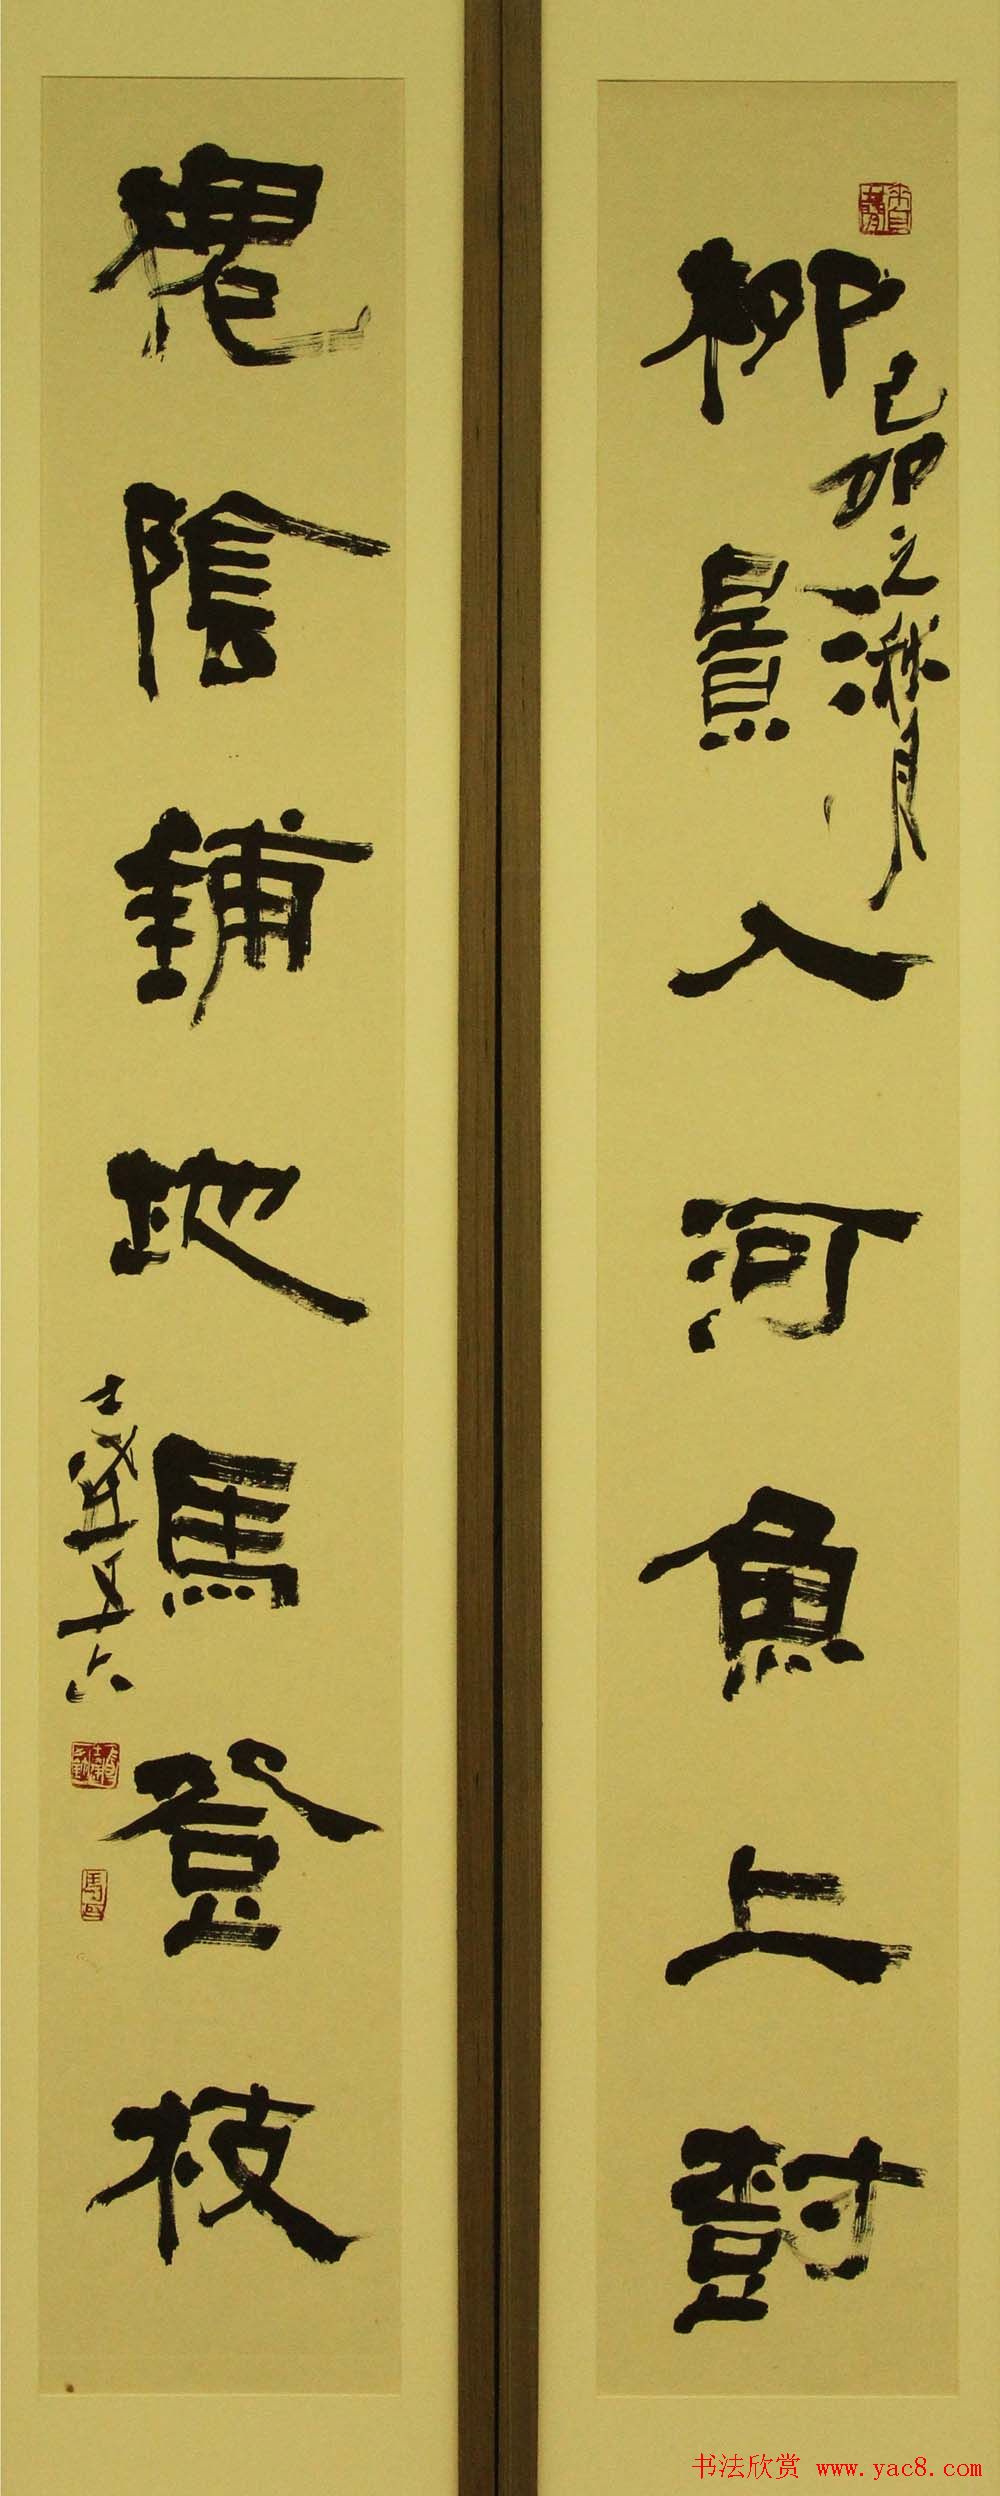 柳景入河魚上尌
己卯之
槐陰鋪地馬登枝
士達五六
书法欣赏 www.yac8.com